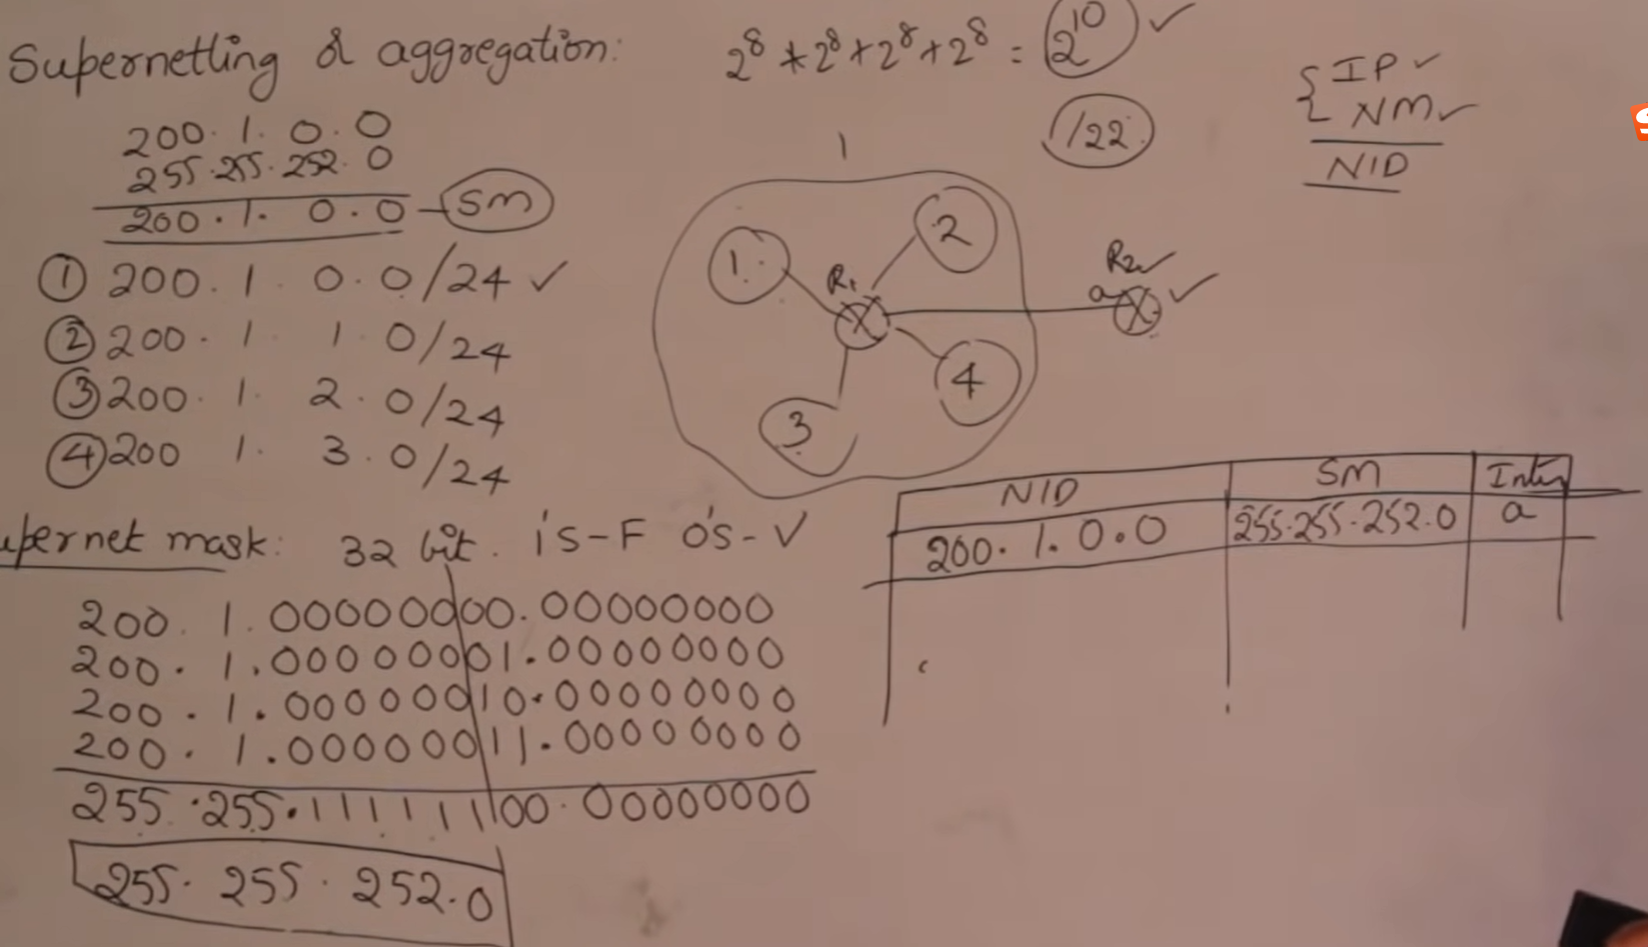 Supernetting & aggregation:
2^8 + 2^8 + 2^8 + 2^8 = 2^10 ✓
/22
{ IP ✓
NM ✓
NID
200.1.0.0
255.255.252.0
200.1.0.0 - SM
① 200.1.0.0/24 ✓
② 200.1.1.0/24
③ 200.1.2.0/24
④ 200 1.3.0/24
1
1.
2
R1
3
4
R2 ✓
a ✓
upernet mask: 32 bit. 1's-F 0's-V
200.1.00000000.00000000
200.1.00000001.00000000
200.1.00000010.00000000
200.1.00000011.00000000
255.255.11111100.00000000
255.255.252.0
NID SM
200.1.0.0 255.255.252.0 a